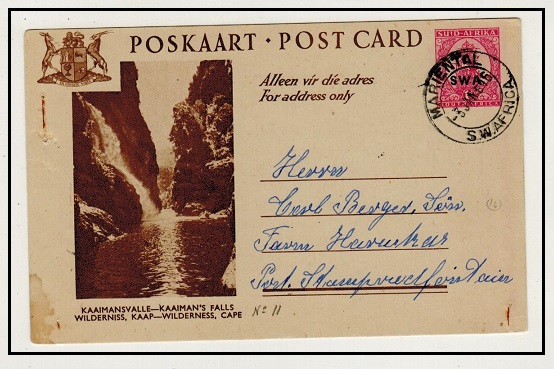 POSKAART · POST CARD
Alleen vir die adres
For address only
SUID-AFRIKA
SWA
SOUTH AFRICA
MARIENTAL
S.W. AFRICA
Herrn
Carl Berger, Sen.
Farm
Post. Stampriet
KAAIMANSVALLE—KAAIMAN'S FALLS
WILDERNISS, KAAP—WILDERNESS, CAPE
No 11